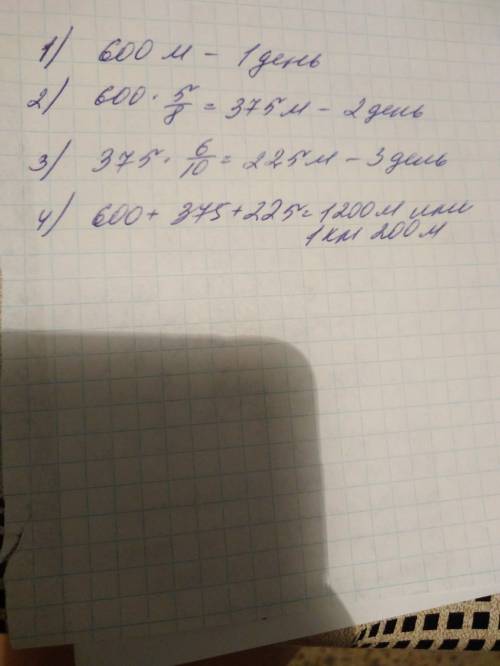 1) 600 м - 1 день
2) 600 · 5/8 = 375 м - 2 день
3) 375 · 6/10 = 225 м - 3 день
4) 600 + 375 + 225 = 1200 м или
1 км 200 м